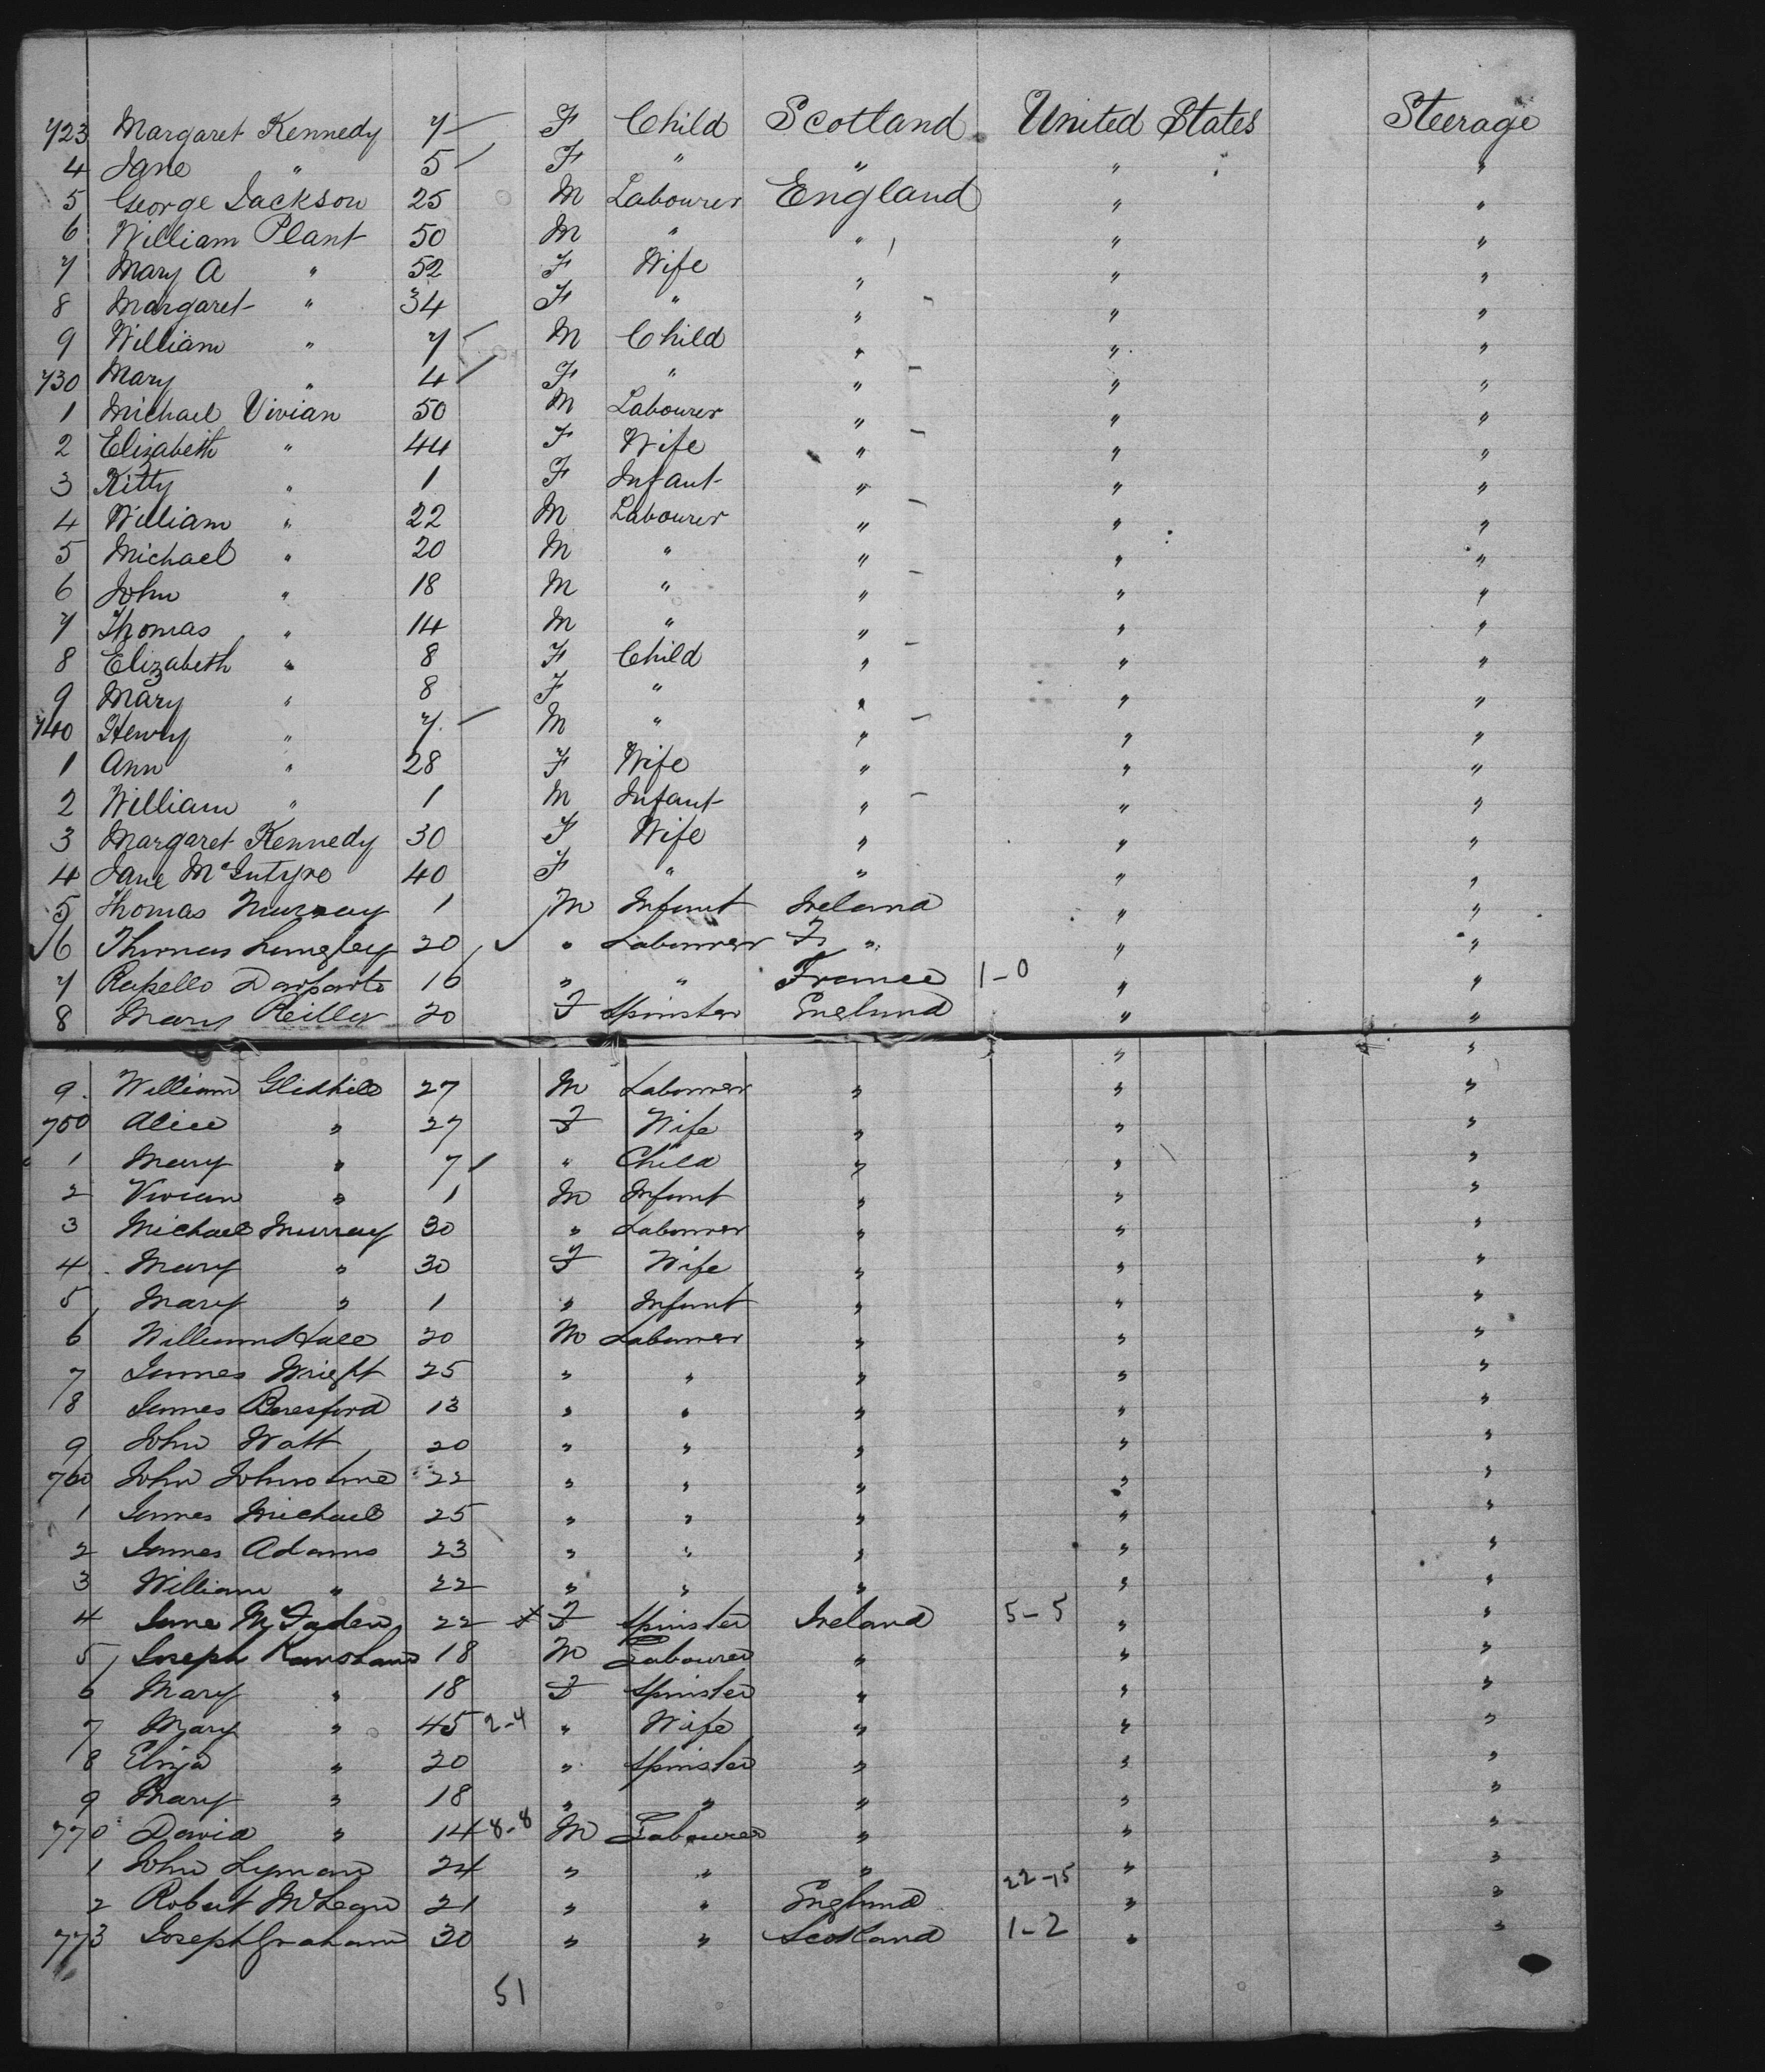 723 Margaret Kennedy 7 F Child Scotland United States Steerage
4 Jane " 5 F " " " "
5 George Jackson 25 M Labourer England " "
6 William Plant 50 M " " " "
7 Mary A " 52 F Wife " " "
8 Margaret " 34 F " " " "
9 William " 7 M Child " " "
730 Mary " 4 F " " " "
1 Michael Vivian 50 M Labourer " " "
2 Elizabeth " 44 F Wife " " "
3 Kitty " 1 F Infant " " "
4 William " 22 M Labourer " " "
5 Michael " 20 M " " " "
6 John " 18 M " " " "
7 Thomas " 14 M " " " "
8 Elizabeth " 8 F Child " " "
9 Mary " 8 F " " " "
740 Henry " 7 M " " " "
1 Ann " 28 F Wife " " "
2 William " 1 M Infant " " "
3 Margaret Kennedy 30 F Wife " " "
4 Jane McIntyre 40 F " " " "
5 Thomas Murray 1 M Infant Ireland " "
6 Thomas Langley 20 " Labourer " " "
7 16 " " France 1-0 " "
8 Mary Reilly 20 F Spinster England " "
" "
9 William Glidhill 27 M Labourer " " "
750 Alice " 27 F Wife " " "
1 Mary " 7 " Child " " "
2 Vivian " 1 M Infant " " "
3 Michael Murray 30 " Labourer " " "
4 Mary " 30 F Wife " " "
5 Mary " 1 " Infant " " "
6 William Hall 20 M Labourer " " "
7 James Wright 25 " " " " "
8 James Beresford 13 " " " " "
9 John Watt 20 " " " " "
760 John Johnstone 22 " " " " "
1 James Michael 25 " " " " "
2 James Adams 23 " " " " "
3 William " 22 " " " " "
4 Jane McFaden 22 F Spinster Ireland 5-5 " "
5 Joseph 18 M Labourer " " "
6 Mary " 18 F Spinster " " "
7 Mary " 45 2-4 " Wife " " "
8 Eliza " 20 " Spinster " " "
9 Mary " 18 " " " " "
770 David " 14 8-8 M Labourer " " "
1 John Lyman 24 " " " " "
2 Robert McLean 21 " " England 22-15 " "
773 Joseph Graham 30 " " Scotland 1-2 " "
51